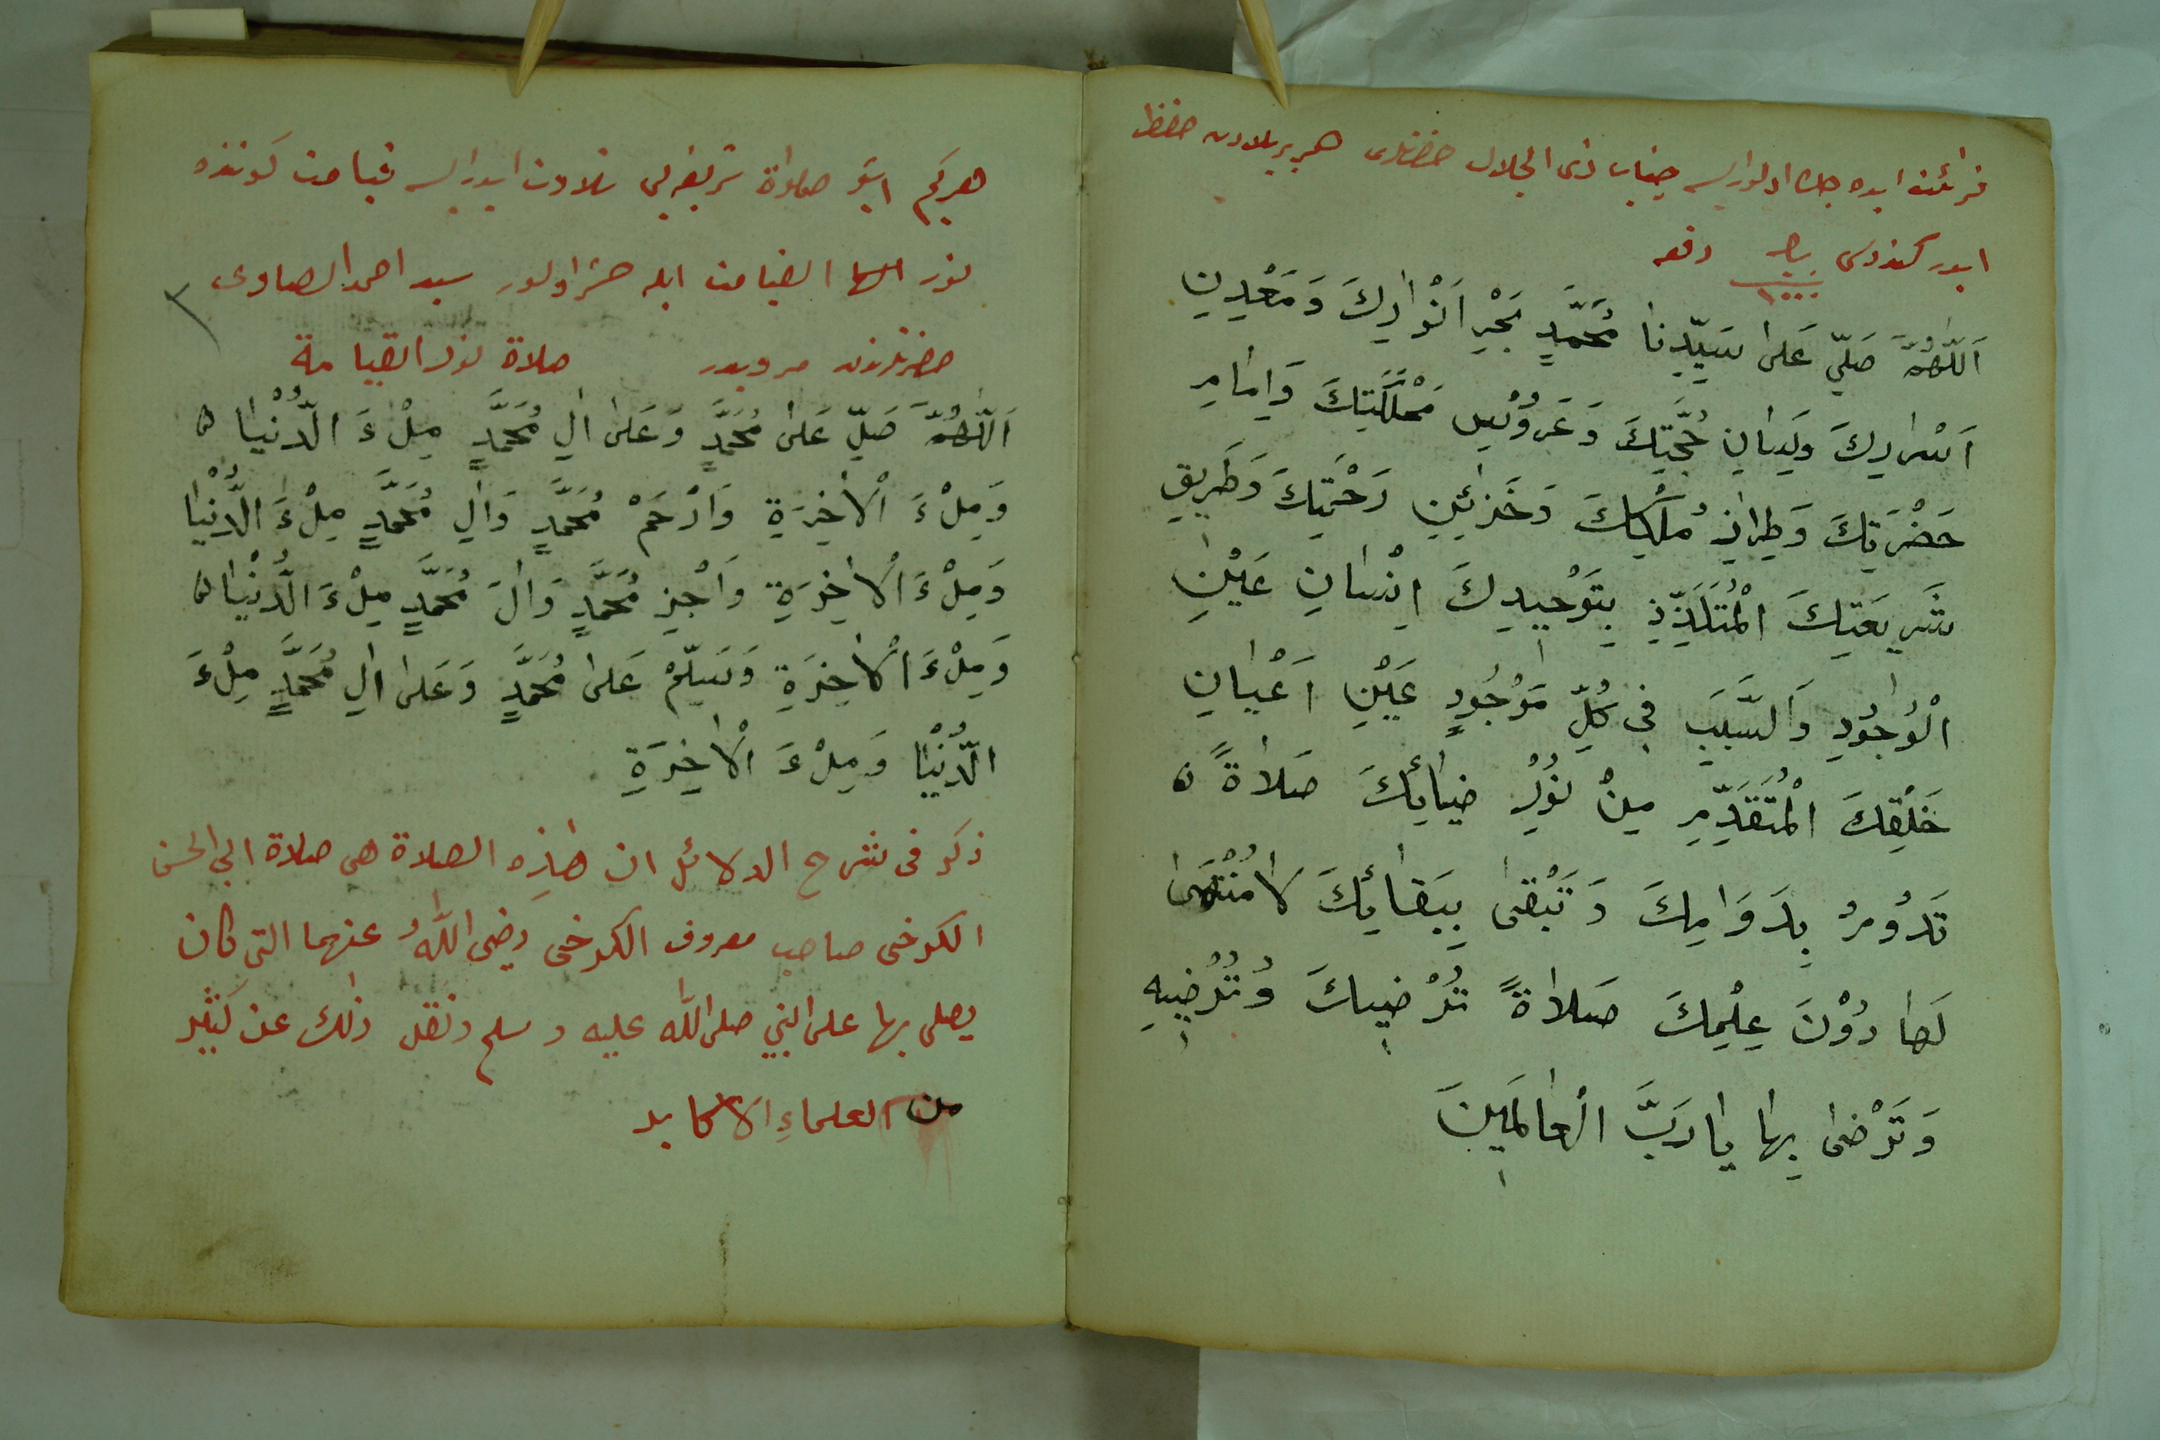 قرائت ايده جك اولورايسه جناب ذى الجلال حضرتلرى هر بر بلادن حفظ
ايدر كندوسى بيك دفعه
١٠٠٠
اَللّٰهُمَّ صَلِّي عَلٰى سَيِّدِنٰا مُحَمَّدٍ بَحْرِ اَنْوٰارِكَ وَمَعْدِنِ
اَسْرارِكَ وَلِسٰانِ حُجَّتِكَ وَعَرُوْسِ مَمْلَكَتِكَ وَاِمٰامِ
حَضْرَتِكَ وَطِرٰازِ مُلْكِكَ وَخَزٰئِنِ رَحْمَتِكَ وَطَرِيقِ
شَرِيعَتِكَ الْمُتَلَذِّذِ بِتَوْحِيدِكَ اِنْسٰانِ عَيْنِ
الْوُجُودِ وَالسَّبَبِ فِى كُلِّ مَوْجُودٍ عَيْنِ اَعْيٰانِ
خَلْقِكَ الْمُتَقَدِّمِ مِنْ نُوْرِ ضِيٰائِكَ صَلٰاةً ه
تَدُوْمُ بِدَوَامِكَ وَتَبْقٰى بِبَقٰائِكَ لٰا مُنْتَهٰى
لَهٰا دُوْنَ عِلْمِكَ صَلٰاةً تُرْضِيكَ وَتُرْضِيهِ
وَتَرْضٰى بِهٰا يٰا رَبَّ الْعٰالَمِينَ
هركيم اشبو صلواة شريفه يى تلاوت ايدرايسه قيامت كوننده
نور القيامت ايله حشر اولور سيد احمد الصاوى
حضرتلرندن مرويدر صلاة نور القيامة
اَللّٰهُمَّ صَلِّ عَلٰى مُحَمَّدٍ وَعَلٰى اٰلِ مُحَمَّدٍ مِلْءَ الدُّنْيٰا ه
وَمِلْءَ الْاٰخِرَةِ وَارْحَمْ مُحَمَّدٍ وَاٰلِ مُحَمَّدٍ مِلْءَ الدُّنْيٰا
وَمِلْءَ الْاٰخِرَةِ وَاَجْزِ مُحَمَّدٍ وَاٰلَ مُحَمَّدٍ مِلْءَ الدُّنْيٰا ه
وَمِلْءَ الْاٰخِرَةِ وَسَلِّمْ عَلٰى مُحَمَّدٍ وَعَلٰى اٰلِ مُحَمَّدٍ مِلْءَ
الدُّنْيٰا وَمِلْءَ الْاٰخِرَةِ
ذكر فى شرح الدلائل ان هٰذِه الصلاة هى صلاة ابى الحسن
الكرخى صاحب معروف الكرخى رضى اللّٰهُ عنهما التى كان
يصلى بها على النبي صلى اللّٰه عليه وسلم ونقل ذٰلك عن كَثير
من العلماءِ الاكابر